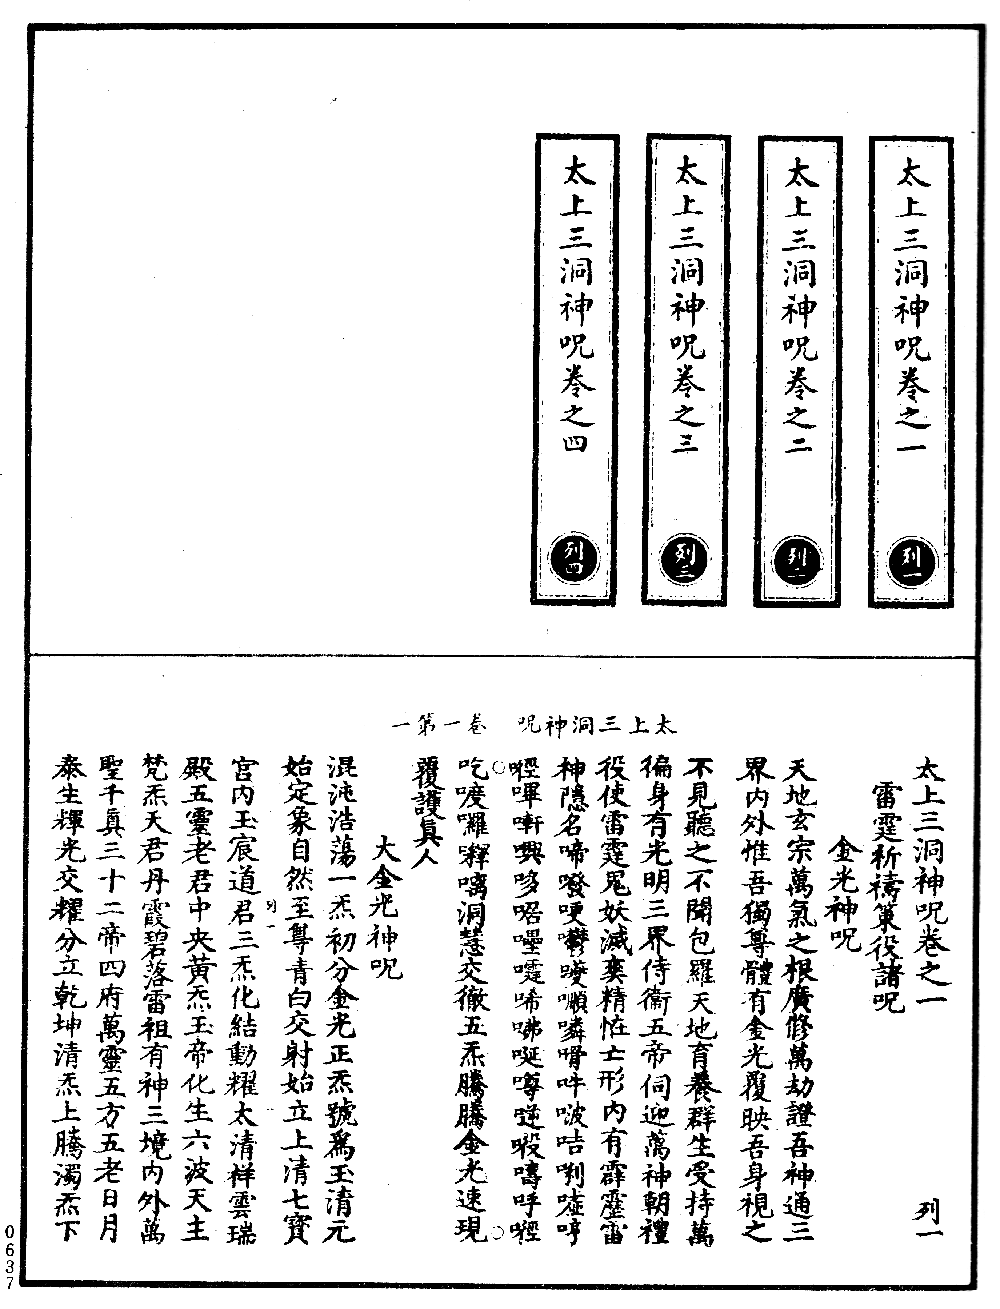 太上三洞神呪卷之一
列一
太上三洞神呪卷之二
列二
太上三洞神呪卷之三
列三
太上三洞神呪卷之四
列四
太上三洞神呪 卷一第一
太上三洞神呪卷之一 列一
雷霆祈禱策役諸呪
金光神呪
天地玄宗萬氣之根廣修萬劫證吾神通三
界內外惟吾獨尊體有金光覆映吾身視之
不見聽之不聞包羅天地育養群生受持萬
徧身有光明三界侍衞五帝伺迎萬神朝禮
役使雷霆鬼妖滅喪精怪亡形內有霹靂雷
神隱名啼
呼
吃洞慧交徹五炁騰騰金光速現
覆護真人
大金光神呪
混沌浩蕩一炁初分金光正炁號爲玉清元
始定象自然至尊青白交射始立上清七寶
宮內玉宸道君三炁化結動耀太清祥雲瑞
列一
殿五靈老君中央黃炁玉帝化生六波天主
梵炁天君丹霞碧落雷祖有神三境內外萬
聖千真三十二帝四府萬靈五方五老日月
泰生輝光交耀分立乾坤清炁上騰濁炁下
0637